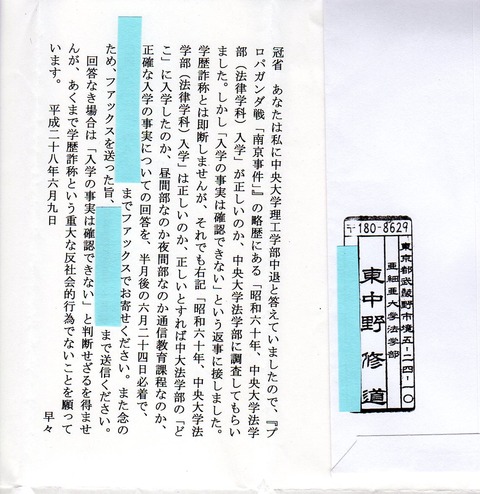 〒180-8629
東京都武蔵野市境五-二四-一〇
亜細亜大学法学部
東中野修道
冠省　あなたは私に中央大学理工学部中退と答えていましたので、『プ
ロパガンダ戦「南京事件」』の略歴にある「昭和六十年、中央大学法学
部（法律学科）入学」が正しいのか、中央大学法学部に調査してもらい
ました。しかし「入学の事実は確認できない」という返事に接しました。
学歴詐称とは即断しませんが、それでも右記「昭和六十年、中央大学法
学部（法律学科）入学」は正しいのか、正しいとすれば中大法学部の「ど
こ」に入学したのか、昼間部なのか夜間部なのか通信教育課程なのか、
正確な入学の事実についての回答を、半月後の六月二十四日必着で、
までファックスでお寄せください。また念の
ため、ファックスを送った旨、　まで送信ください。
回答なき場合は「入学の事実は確認できない」と判断せざるを得ませ
んが、あくまで学歴詐称という重大な反社会的行為でないことを願って
います。　平成二十八年六月九日　早々